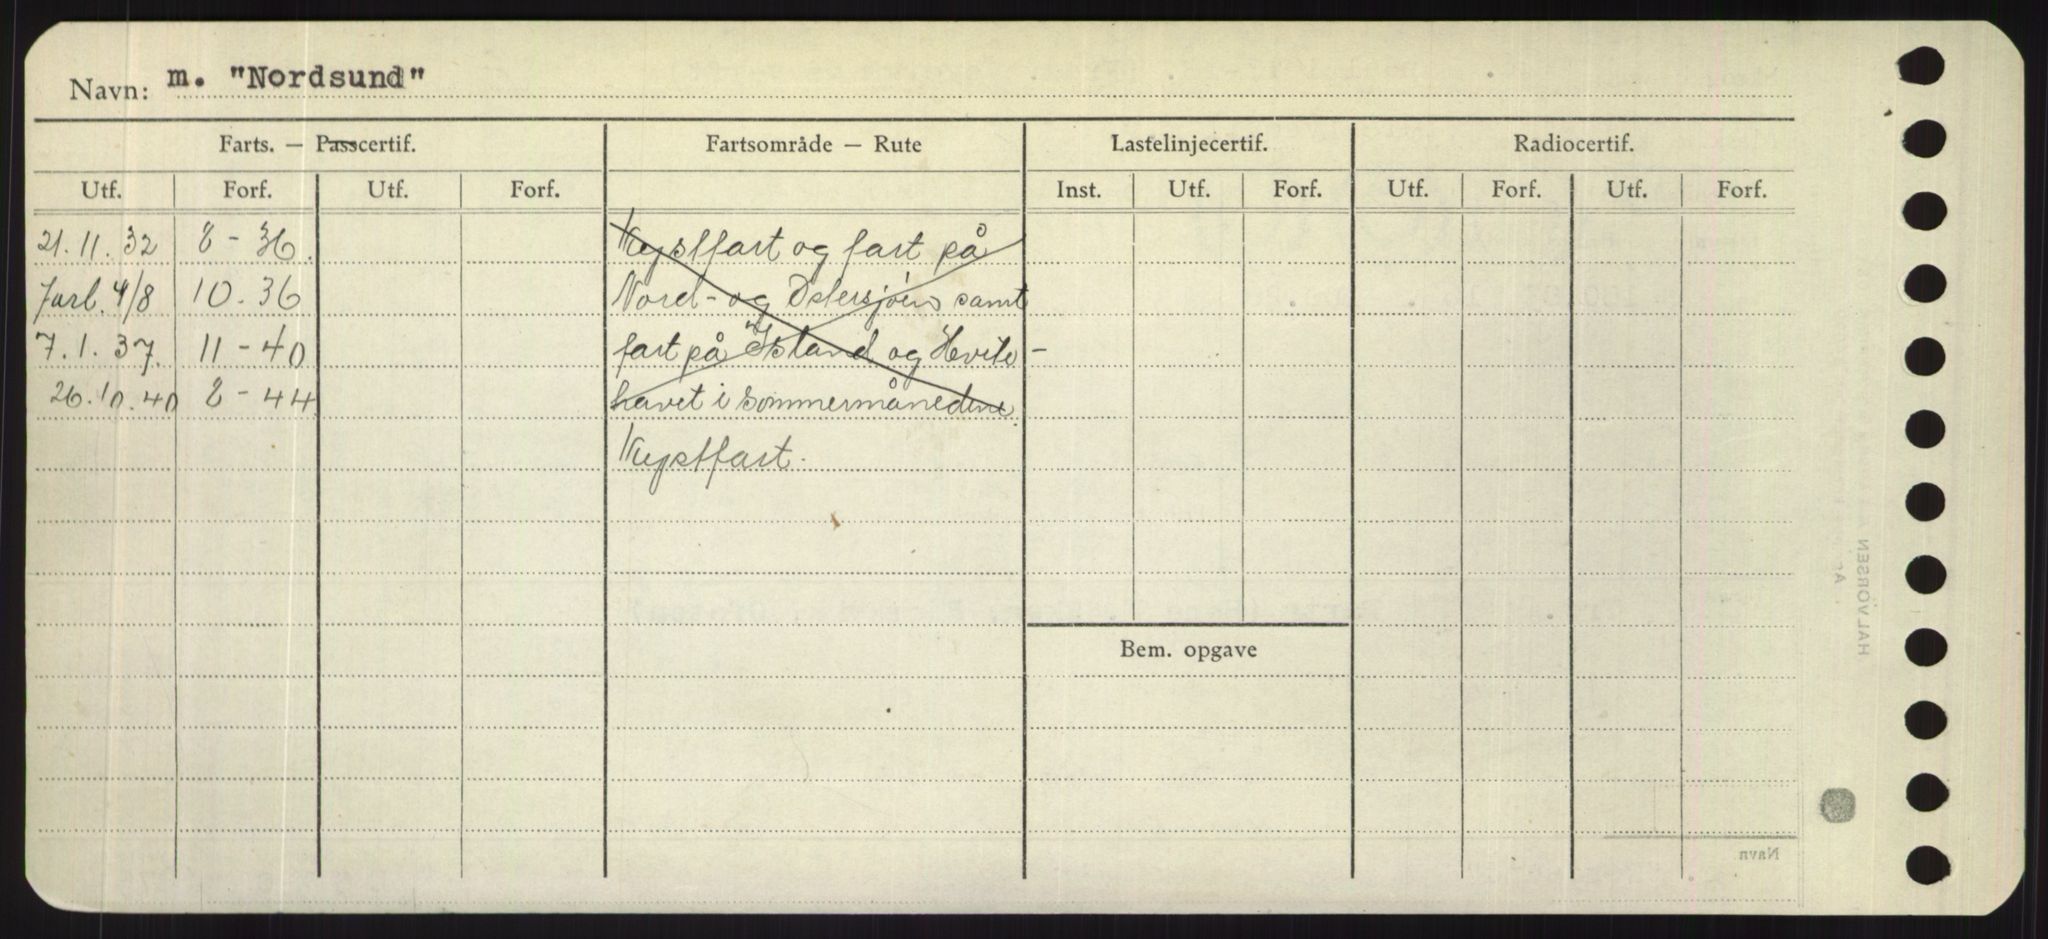 Navn: m. "Nordsund"
Farts. — Passcertif. Fartsområde — Rute Lastelinjecertif. Radiocertif.
Utf. Forf. Utf. Forf. Inst. Utf. Forf. Utf. Forf. Utf. Forf.
21.11.32 8-36. Kystfart og fart på
Forl. 4/8 10.36 Nord- og Østersjøen samt
7.1.37. 11-40 fart på Island og Hvite-
26.10.40 8-44 havet i sommermånedene.
Kystfart.
Bem. opgave
HALVORSEN
Navn